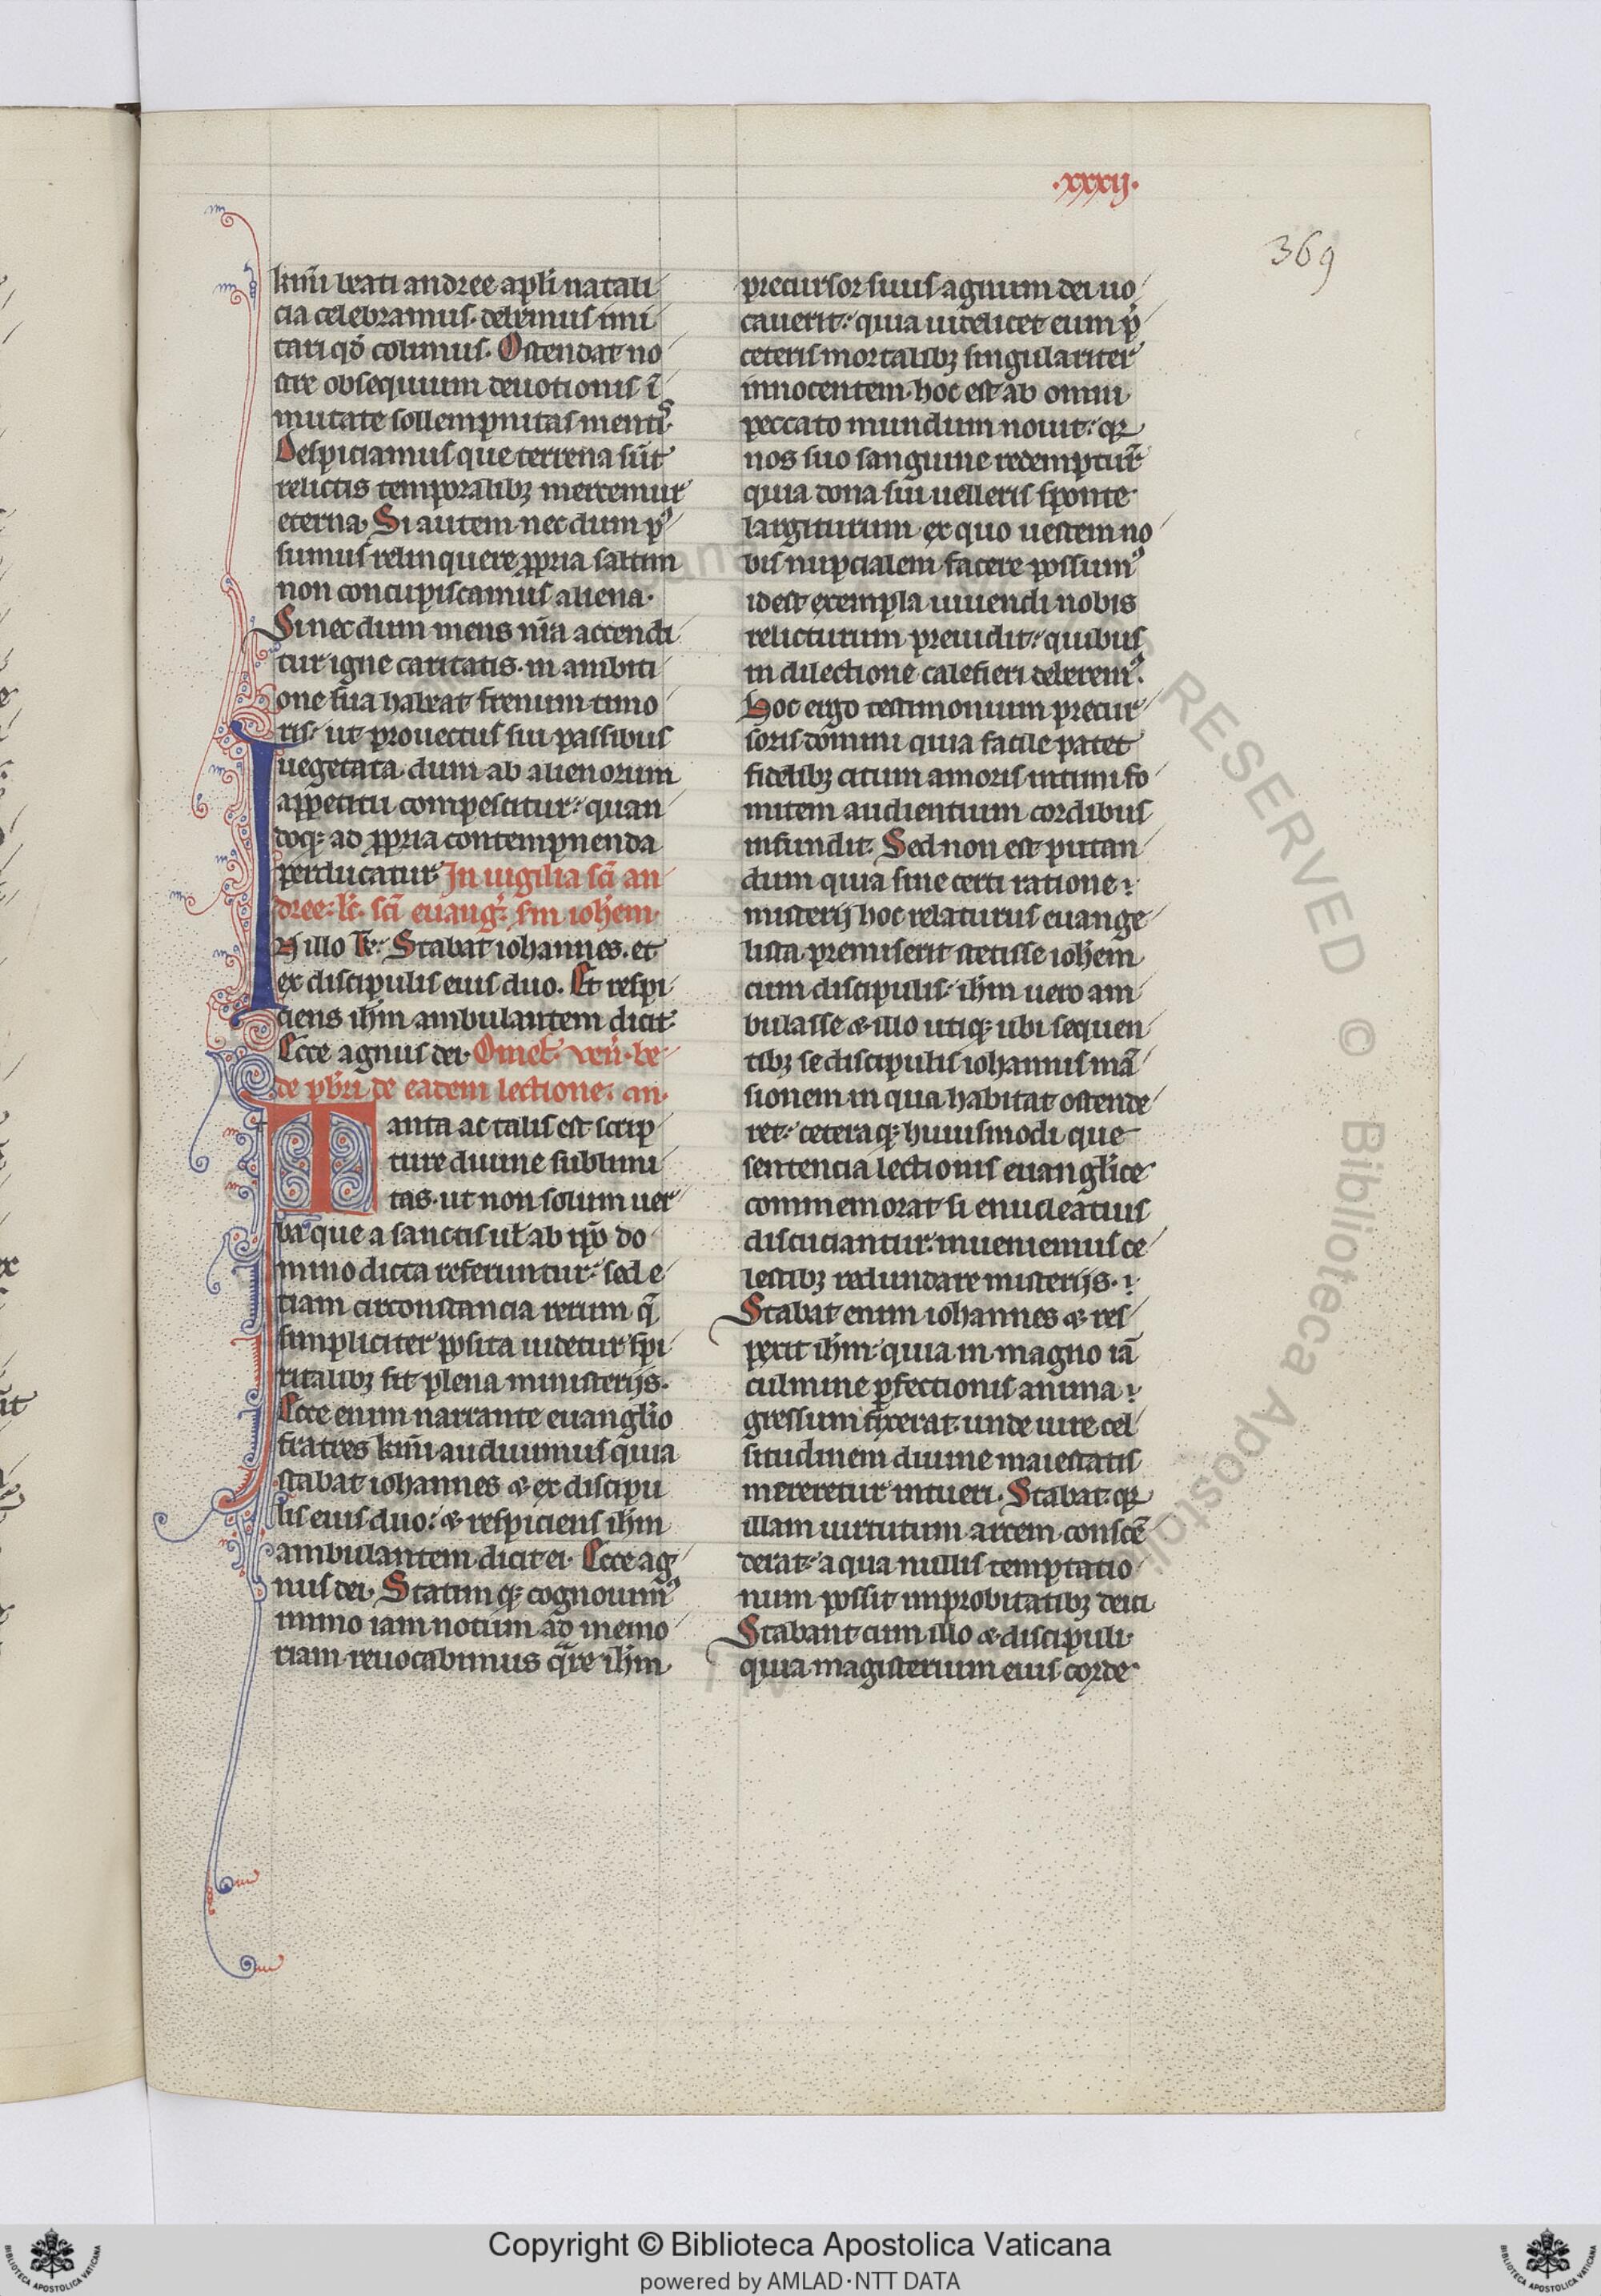 .xxxij.
369
km̄i beati andree apl̄i natali
cia celebramus. debemus imi
tari qd̄ colimus. Ostendat no
stre obsequium deuotionis ī
mutate sollempnitas mentis.
Despiciamus que terrena sūt
relictis temporalibꝫ mercemur
eterna. Si autem necdum pos
sumus relinquere ꝓpria saltim
non concupiscamus aliena.
Si necdum mens nr̄a accendi
tur igne caritatis. in ambiti
one sua habeat frenum timo
ris. ut prouectus sui passibus
uegetata. dum ab alienorum
appetitu compescitur. quan
doqꝫ ad ꝓpria contempnenda
perducatur In uigilia sc̄i an
dree. lc̄. sc̄i euangꝫ. sm̄ ioh̄em.
IN illo t̄. Stabat iohannes. et
ex discipulis eius duo. Et respi
ciens ih̄m ambulantem dicit.
Ecce agnus dei. Omel̄. ven̄. be
de p̄br̄i de eadem lectione.
Tanta ac talis est scrip
ture diuine sublimi
tas. ut non solum uer
ba que a sanctis ul̄ ab ip̄o do
mino dicta referuntur. sed e
tiam circonstancia rerum q̄
simpliciter posita uidetur spi
ritalibꝫ sit plena ministerijs.
Ecce enim narrante euangl̄io
fratres km̄i audiuimus quia
stabat iohannes & ex discipu
lis eius duo. & respiciens ih̄m
ambulantem dicit ei. Ecce ag
nus dei. Statimqꝫ cognouimꝰ
immo iam notum ad memo
riam reuocabimus qͣre ih̄m
precursor suus agnum dei uo
cauerit. quia uidelicet eum p̄
ceteris mortalibꝫ singulariter
innocentem. hoc est ab omni
peccato mundum nouit. qꝛ
nos suo sanguine redempturū
quia dona sui uelleris sponte
largiturum. ex quo uestem no
bis nupcialem facere possumꝰ
id est exempla uiuendi nobis
relicturum preuidit. quibus
in dilectione calefieri deberemꝰ.
Hoc ergo testimonium precur
soris domini quia facile patet
fidelibꝫ citum amoris intimi fo
mitem audientium cordibus
infundit. Sed non est putan
dum quia sine certi ratione
misterij hoc relaturus euange
lista. premiserit stetisse ioh̄em
cum discipulis. ih̄m uero am
bulasse & illo utiqꝫ ubi sequen
tibꝫ se discipulis iohannis mā
sionem in qua habitat ostende
ret. ceteraqꝫ huiusmodi que
sentencia lectionis euangl̄ice
commemorat si enucleatius
discuciantur. inueniemus ce
lestibꝫ redundare misterijs.
Stabat enim iohannes & res
pexit ih̄m. quia in magno iā
culmine ꝑfectionis anima
gressum fixerat. unde iure cel
situdinem diuine maiestatis
mereretur intueri. Stabat. qꝛ
illam uirtutum arcem conscē
derat. a qua nullis temptatio
num possit improbitatibꝫ deici
Stabant cum illo & discipuli.
quia magisterium eius corde
RESERVED © Biblioteca Apostolica
Copyright © Biblioteca Apostolica Vaticana
powered by AMLAD·NTT DATA
BIBLIOTECA APOSTOLICA VATICANA
BIBLIOTECA APOSTOLICA VATICANA